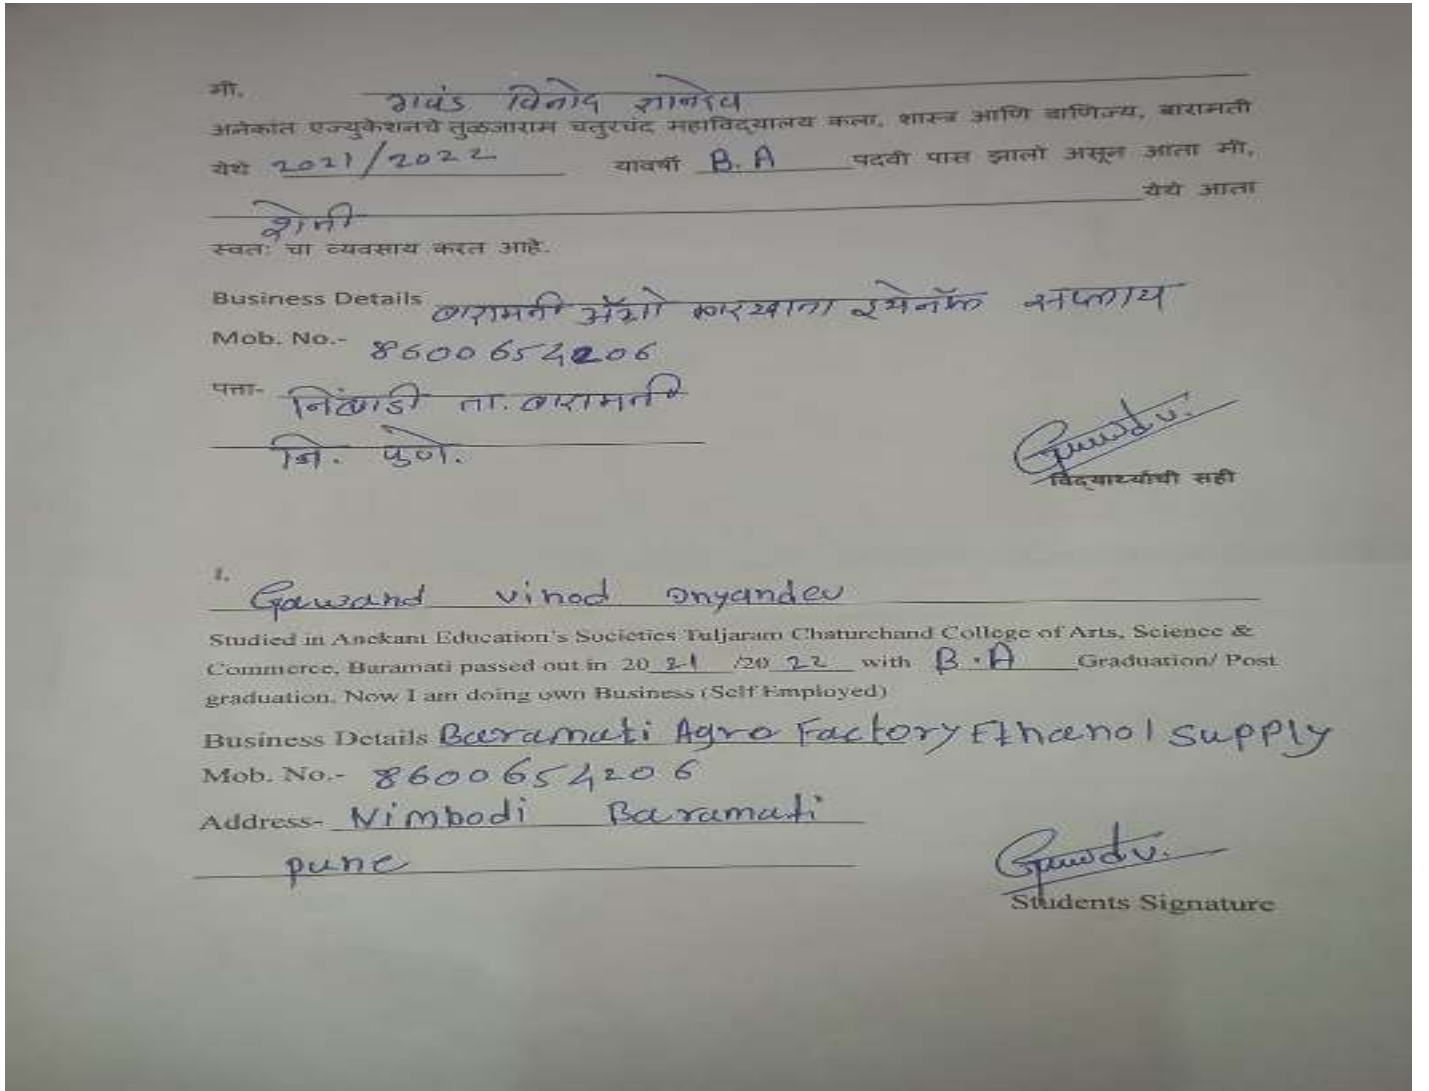 मी, गवंड विनोद ज्ञानदेव
अनेकांत एज्युकेशनचे तुळजाराम चतुरचंद महाविद्यालय कला, शास्त्र आणि वाणिज्य, बारामती
येथे 2021/2022 यावर्षी B.A पदवी पास झालो असून आता मी,
शेती येथे आता
स्वतः चा व्यवसाय करत आहे.
Business Details बारामती ॲग्रो कारखाना इथेनॉल सप्लाय
Mob. No.- 8600654206
पत्ता- निंबोडी ता. बारामती
जि. पुणे.
Gawand v.
विद्यार्थ्याची सही
I, Gawand vinod Dnyandev
Studied in Anekant Education's Societies Tuljaram Chaturchand College of Arts, Science &
Commerce, Baramati passed out in 20 21 /20 22 with B.A Graduation/ Post
graduation. Now I am doing own Business (Self Employed)
Business Details Baramati Agro Factory Ethanol supply
Mob. No.- 8600654206
Address- Nimbodi Baramati
pune
Gawand v.
Students Signature